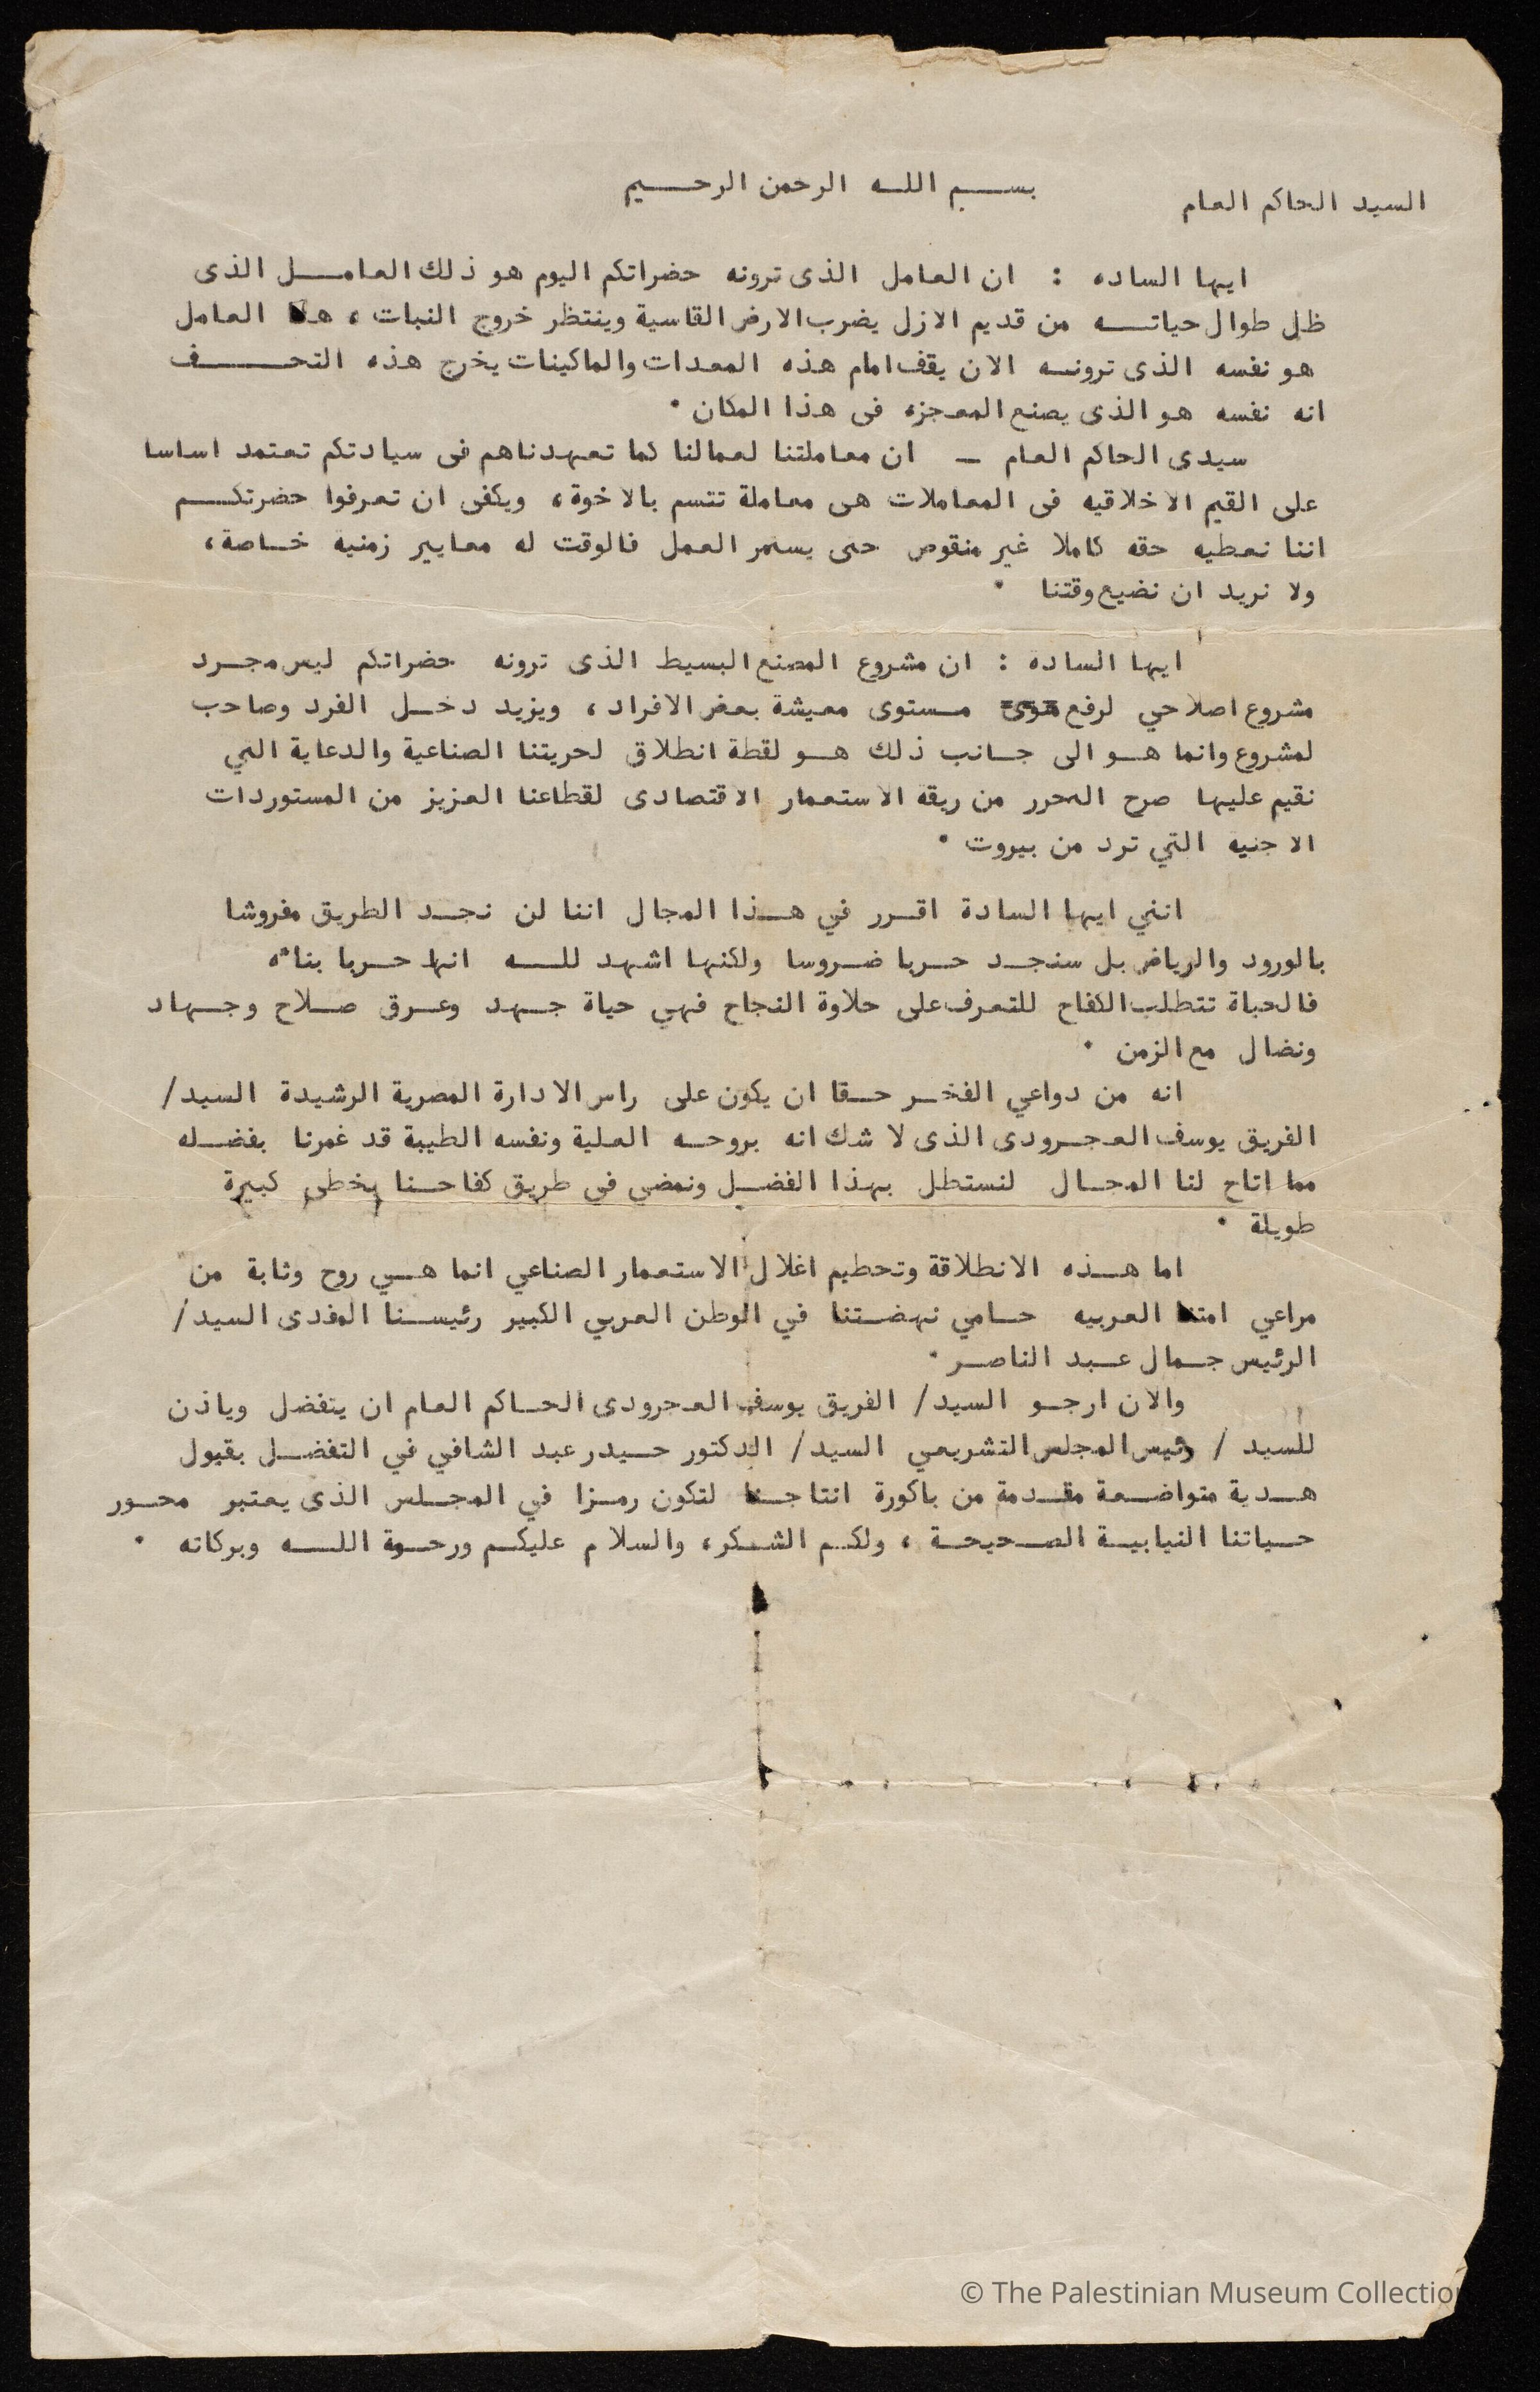 بسم الله الرحمن الرحيم
السيد الحاكم العام
ايها الساده : ان العامل الذى ترونه حضراتكم اليوم هو ذلك العامل الذى
ظل طوال حياته من قديم الازل يضرب الارض القاسية وينتظر خروج النبات ، هذا العامل
هو نفسه الذى ترونه الان يقف امام هذه المعدات والماكينات يخرج هذه التحف
انه نفسه هو الذى يصنع المعجزه فى هذا المكان ٠
سيدى الحاكم العام – ان معاملتنا لعمالنا كما تعهدناهم فى سيادتكم تعتمد اساسا
على القيم الاخلاقيه فى المعاملات هى معاملة تتسم بالاخوة ، ويكفى ان تعرفوا حضرتكم
اننا نعطيه حقه كاملا غير منقوص حتى يستمر العمل فالوقت له معايير زمنيه خاصة ،
ولا نريد ان نضيع وقتنا ٠
ايها السادة : ان مشروع المصنع البسيط الذى ترونه حضراتكم ليس مجرد
مشروع اصلاحي لرفع مستوى معيشة بعض الافراد ، ويزيد دخل الفرد وصاحب
لمشروع وانما هو الى جانب ذلك هو لقطة انطلاق لحريتنا الصناعية والدعاية التي
نقيم عليها صرح التحرر من ريقه الاستعمار الاقتصادى لقطاعنا العزيز من المستوردات
الاجنيه التي ترد من بيروت ٠
انني ايها السادة اقرر في هذا المجال اننا لن نجد الطريق مفروشا
بالورود والرياض بل سنجد حربا ضروسا ولكنها اشهد لله انها حربا بنائه
فالحياة تتطلب الكفاح للتعرف على حلاوة النجاح فهي حياة جهد وعرق صلاح وجهاد
ونضال مع الزمن ٠
انه من دواعي الفخر حقا ان يكون على راس الادارة المصرية الرشيدة السيد/
الفريق يوسف العجرودى الذى لا شك انه بروحه العلية ونفسه الطيبة قد غمرنا بفضله
مما اتاح لنا المجال لنستطل بهذا الفضل ونمضي في طريق كفاحنا بخطى كبيرة
طويلة ٠
اما هذه الانطلاقة وتحطيم اغلال الاستعمار الصناعي انما هي روح وثابة من
مراعي امتنا العربيه حامي نهضتنا في الوطن العربي الكبير رئيسنا المفدى السيد/
الرئيس جمال عبد الناصر ٠
والان ارجو السيد/ الفريق يوسف العجرودى الحاكم العام ان يتفضل وياذن
للسيد / رئيس المجلس التشريعي السيد/ الدكتور حيدر عبد الشافي في التفضل بقبول
هدية متواضعة مقدمة من باكورة انتاجنا لتكون رمزا في المجلس الذى يعتبر محور
حياتنا النيابية الصحيحة ، ولكم الشكر ، والسلام عليكم ورحمة الله وبركاته ٠
© The Palestinian Museum Collection